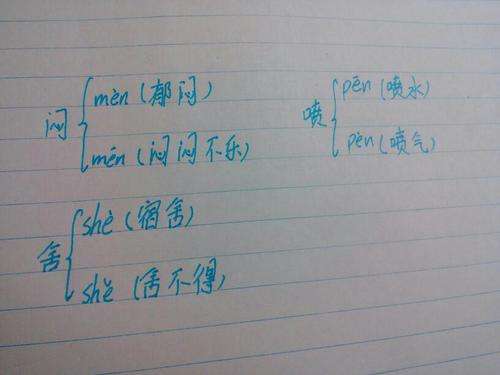 闷
mèn (郁闷)
mēn (闷闷不乐)
喷
pēn (喷水)
pèn (喷气)
舍
shè (宿舍)
shě (舍不得)